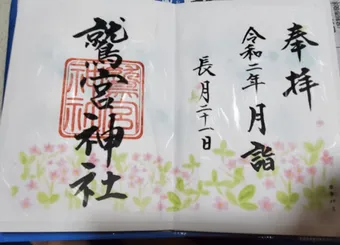 奉拝
令和二年 月詣
長月二十一日
鷲宮神社